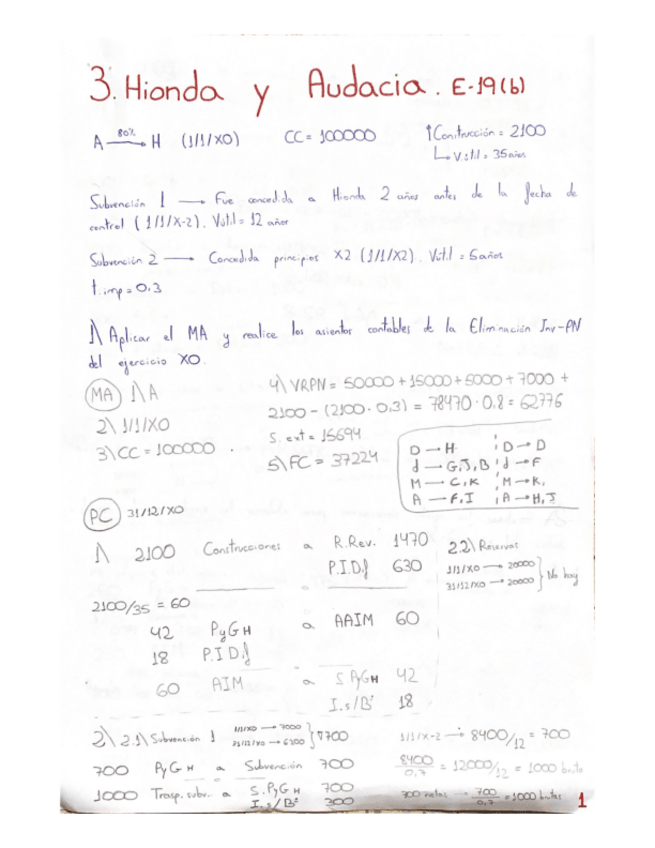 3. Hionda y Audacia. E-19(b)
A 80% → H (1/1/X0) CC = 100000 ↑Construcción = 2100
↳ Vútil = 35 años
Subvención 1 → Fue concedida a Hionda 2 años antes de la fecha de
control (1/1/X-2). Vútil = 12 años
Subvención 2 → Concedida principios X2 (1/1/X2). Vútil = 5 años
t.imp = 0.3
1) Aplicar el MA y realice los asientos contables de la Eliminación Inv-PN
del ejercicio X0.
MA 1) A
2) 1/1/X0
3) CC = 100000
4) VRPN = 50000 + 15000 + 5000 + 7000 +
2100 - (2100 · 0,3) = 78470 · 0,8 = 62776
S. ext = 15694
5) FC = 37224
D → H D → D
d → G, J, B d → F
M → C, K M → K,
A → F, I A → H, J
PC 31/12/X0
1) 2100 Construcciones a R.Rev. 1470
P.I.D.f 630
2100/35 = 60
42 PyG H a AAIM 60
18 P.I.D.f
60 AIM a S PyG H 42
I.s/Bº 18
2.2) Reservas
1/1/X0 → 20000
31/12/X0 → 20000 } No hay
2) 2.1) Subvención 1 1/1/X0 → 7000
31/12/X0 → 6300 } ∇700
700 PyG H a Subvención 700
1000 Trasp. subv. a S.PyG H 700
I.s/Bº 300
1/1/X-2 → 8400/12 = 700
8400/0,7 = 12000/12 = 1000 bruto
700 netas → 700/0,7 = 1000 brutas
1